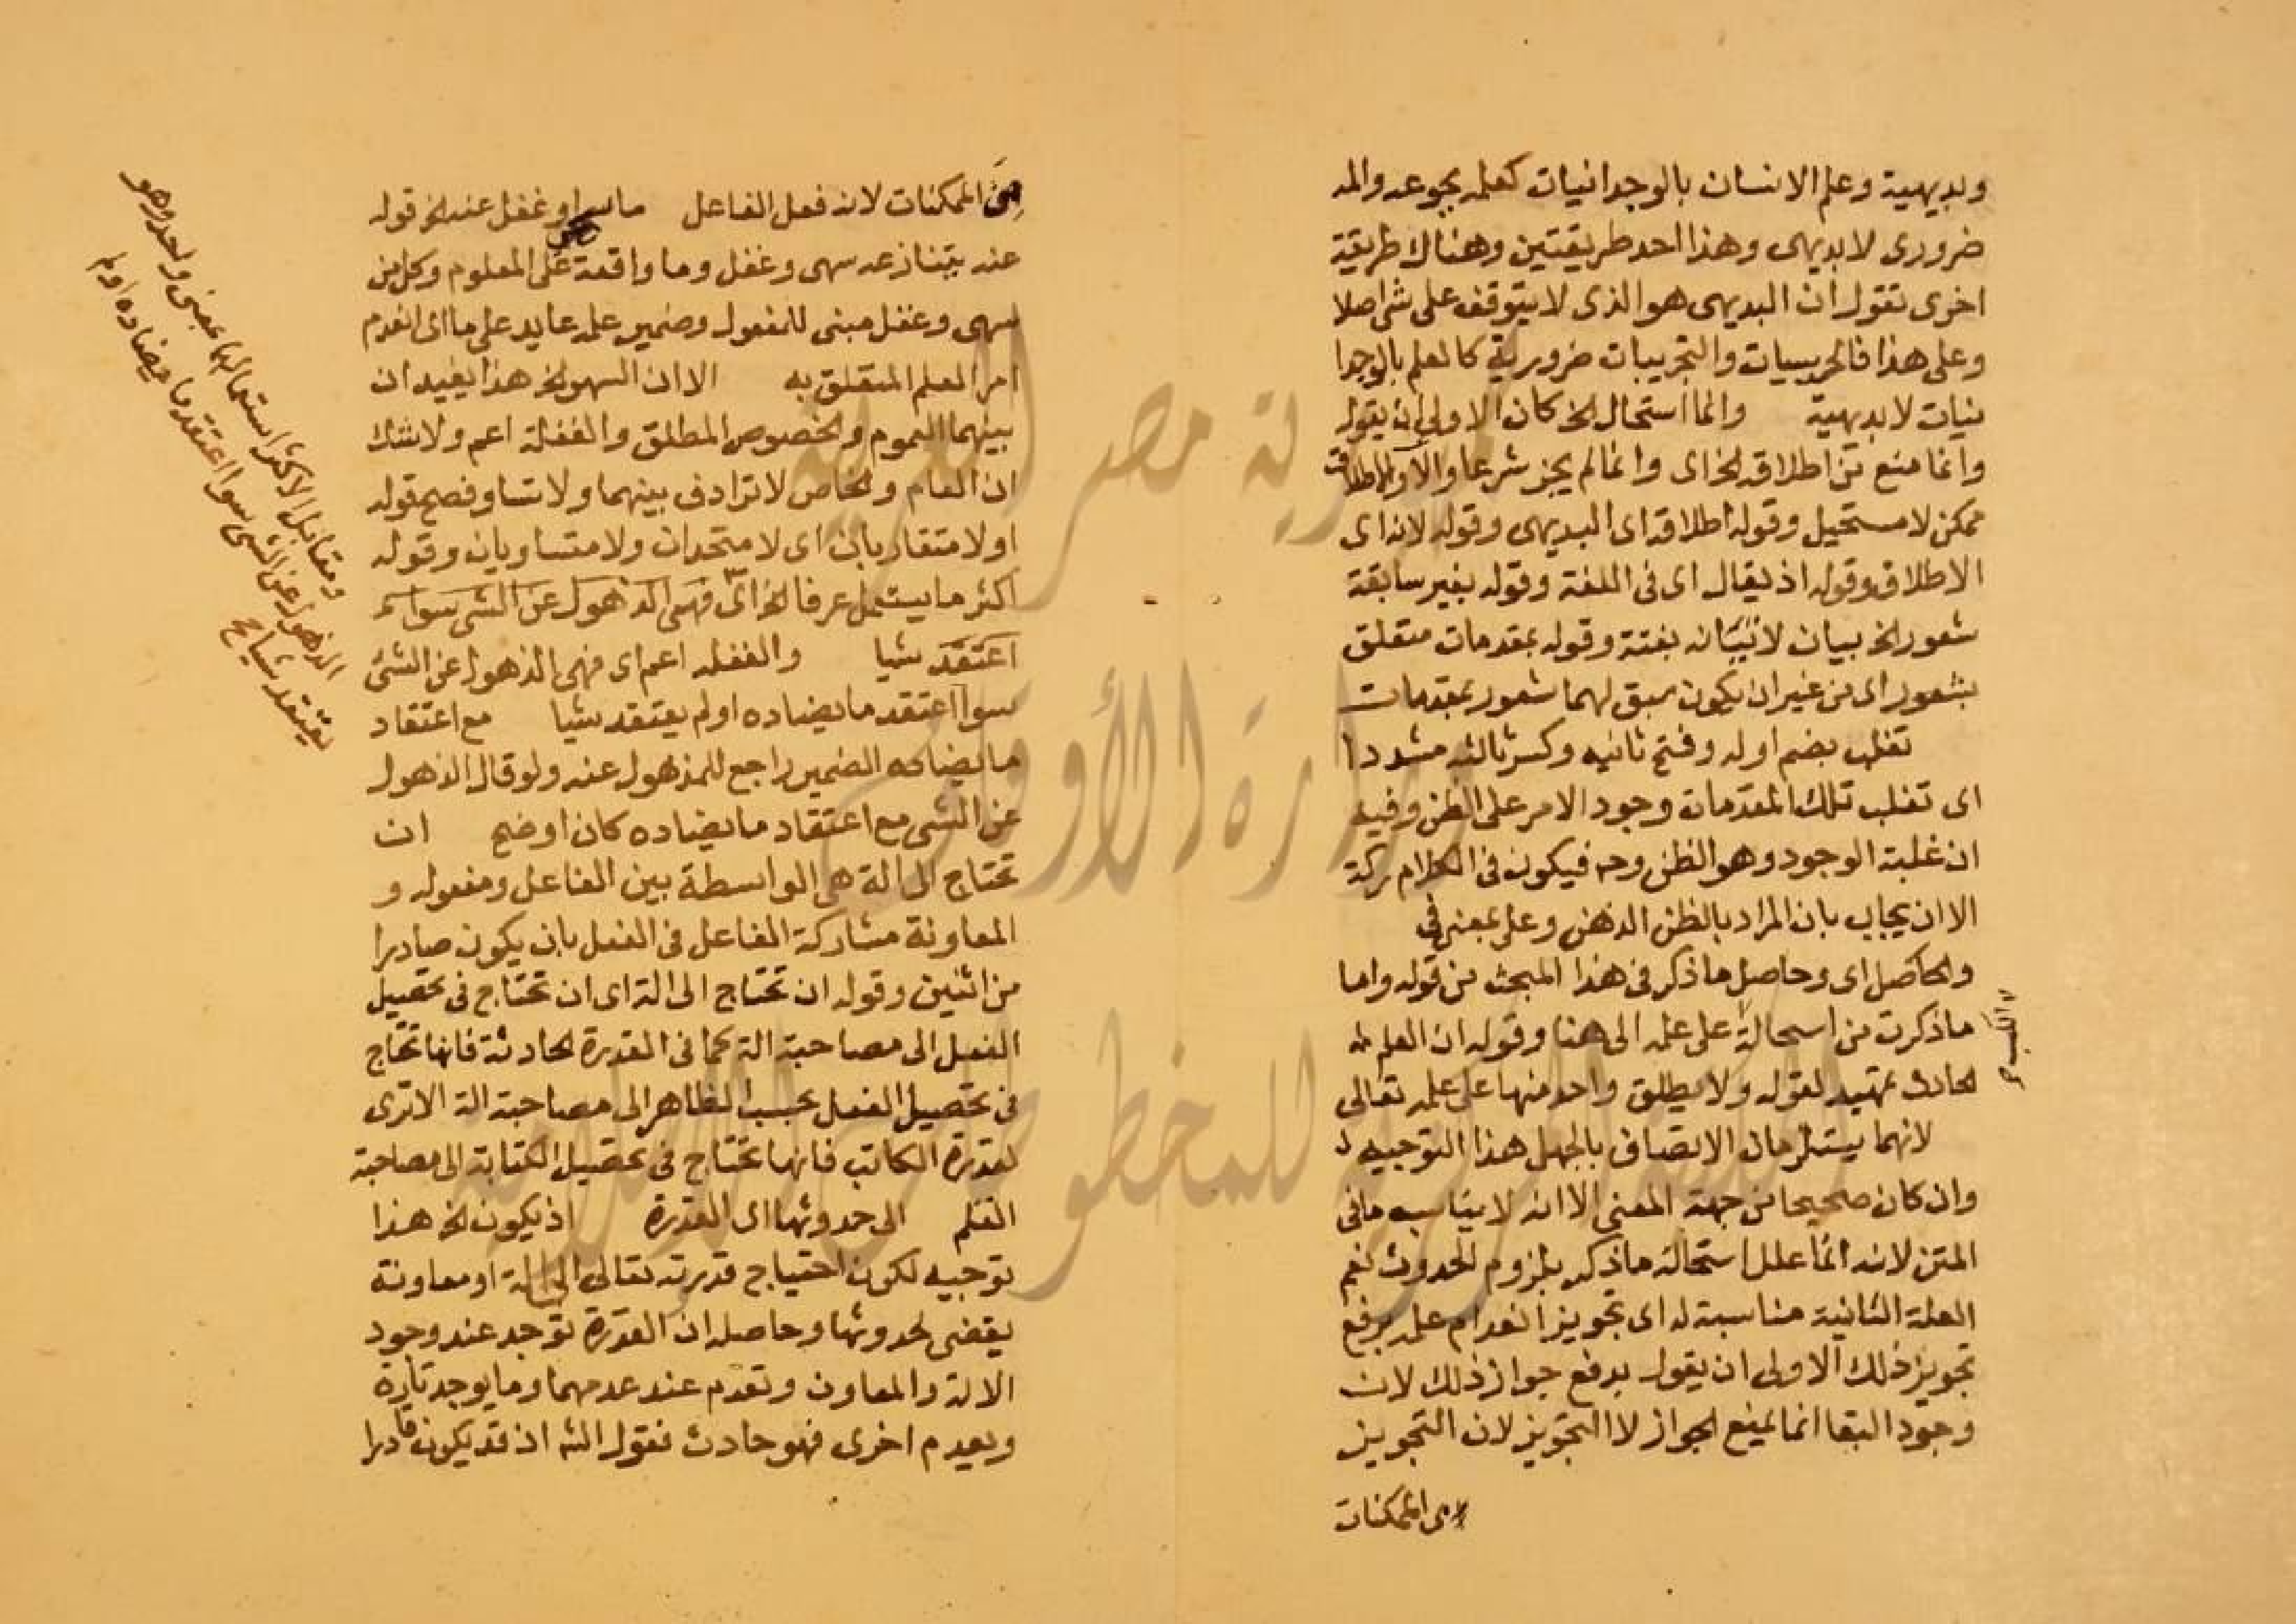 وبديهية وعلم الانسان بالوجدانيات كعلمه بجوعه والمه
ضرورى لا بديهى وهذا احد طريقتين وهناك طريقة
اخرى تقول ان البديهى هو الذى لا يتوقف على شى اصلا
وعلى هذا فالحدسيات والتجريبات ضرورية كالعلم بالوجدا
نيات لا بديهية وانما استحال الخ كان الاولى ان يقول
وانما منع من اطلاقه الخ اى وانما لم يجز شرعا والا فالاطلاق
ممكن لا مستحيل وقوله اطلاقه اى البديهى وقوله لانه اى
الاطلاق وقوله اذ يقال اى فى اللغة وقوله بغير سابقة
شعور الخ بيان لاتيانه بغتة وقوله بمقدمات متعلق
بشعور اى من غير ان يكون سبق لهما شعور بمقدمات
تغلب بضم اوله وفتح ثانيه وكسر ثالثه مشددا
اى تغلب تلك المقدمات وجود الامر على الظن وفيه
ان غلبة الوجود وهو الظن وحه فيكون فى الكلام ركة
الا ان يجاب بان المراد بالظن الذهن وعلى بمعنى فى
والحاصل اى وحاصل ما ذكر فى هذا المبحث من قوله واما
ما ذكرت من استحالة على علمه الى هنا وقوله ان العلم
الحادث تمهيد لقوله ولا يطلق واحد منها على علمه تعالى
لانهما يستلزمان الاتصاف بالجهل هذا التوجيه
وان كان صحيحا من جهة المعنى الا انه لا يناسب ما فى
المتن لانه انما علل استحالة ما ذكر بلزوم الحدوث نعم
العلة الثانية مناسبة له اى تجويز انعدام علمه يرفع
تجويز ذلك الاولى ان يقول يدفع جواز ذلك لان
وجود البقا انما يمنع الجواز لا التجويز لان التجويز
من الممكنات
من الممكنات لانه فعل الفاعل ما سها او غفل عنه الخ قوله
عنه يتنازعه سهى وغفل وما واقعة على المعلوم وكل من
سهى وغفل مبنى للمفعول وضمير علمه عايد على ما اى انعدم
امر العلم المتعلق به الا ان السهو الخ هذا يفيد ان
بينهما العموم والخصوص المطلق والغفلة اعم ولا شك
ان العام والخاص لا ترادف بينهما ولا تساو فصح قوله
او لا متقاربان اى لا متحدان ولا متساويان وقوله
اكثر ما يستعمل عرفا الخ اى فهى الذهول عن الشى سوا
اعتقد شيا والغفلة اعم اى فهى الذهول عن الشى
سوا اعتقد ما يضاده او لم يعتقد شيا مع اعتقاد
ما يضاده الضمير راجع للمذهول عنه ولو قال الذهول
عن الشى مع اعتقاد ما يضاده كان اوضح ان
تحتاج الى الة هى الواسطة بين الفاعل ومفعوله و
المعاونة مشاركة الفاعل فى الفعل بان يكون صادرا
من اثنين وقوله ان تحتاج الى الة اى ان تحتاج فى تحصيل
الفعل الى مصاحبة الة كما فى القدرة الحادثة فانها تحتاج
فى تحصيل الفعل بحسب الظاهر الى مصاحبة الة الا ترى
لقدرة الكاتب فانها تحتاج فى تحصيل الكتابة الى مصاحبة
القلم الى حدوثها اى القدرة اذ يكون الخ هذا
توجيه لكون احتياج قدرته تعالى الى الة او معاونة
يقضى لحدوثها وحاصله ان القدرة توجد عند وجود
الالة والمعاون وتعدم عند عدمهما وما يوجد تارة
ويعدم اخرى فهو حادث فقول الش اذ قد يكون قادرا
ومقابل الاكثر استعمالهما بمعنى واحد وهو
الذهول عن الشى سوا اعتقد ما يضاده او لم
يعتقد شيا